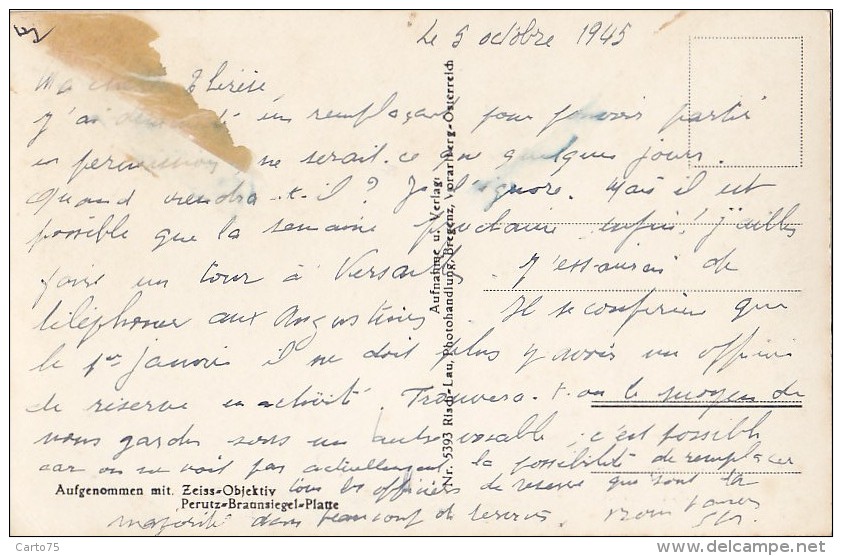 Le 5 octobre 1945
Ma chère Thérèse
J'ai demandé un remplaçant pour pouvoir partir
en permission, ne serait-ce que quelques jours.
Quand viendra-t-il? Je l'ignore. Mais il est
possible que la semaine prochaine enfin! j'aille
faire un tour à Versailles. J'essaierai de
téléphoner aux Augustines. Il se confirme que
le 1er janvier il ne doit plus y avoir un officier
de réserve en activité. Trouvera-t-on le moyen de
nous garder sous un autre vocable; c'est possible
car on ne voit pas actuellement la possibilité de remplacer
tous les officiers de réserve qui sont la
majorité dans beaucoup de services.
Aufgenommen mit Zeiss-Objektiv
Perutz-Braunsiegel-Platte
Aufnahme u. Verlag:
Nr. 5393 Risch-Lau, Photohandlung, Bregenz, Vorarlberg-Österreich
Carto75
delcampe.net